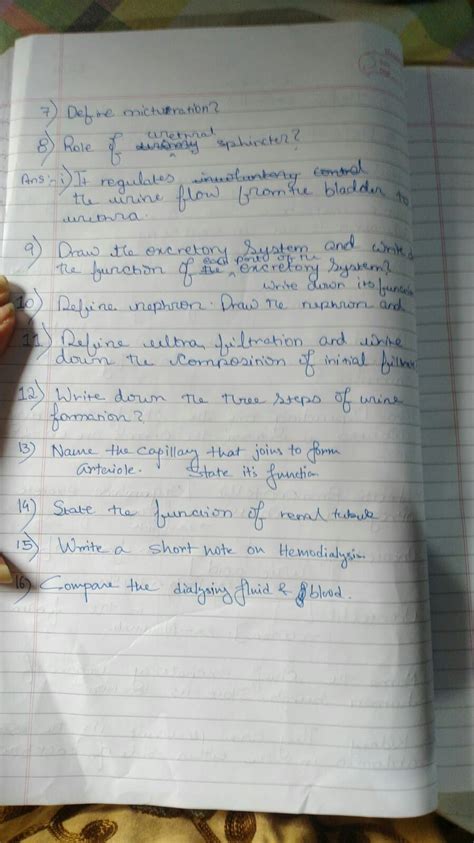 7) Define micturation?
8) Role of urethral sphincter?
Ans:- i) It regulates involuntary control
the urine flow from the bladder to
urethra.
9) Draw the excretory system and write
the function of each parts of the excretory system?
write down its function
10) Define nephron. Draw the nephron and
11) Define ultra filtration and write
down the composition of initial filtrate
12) Write down the three steps of urine
formation?
13) Name the capillary that joins to form
arteriole. State its function
14) State the function of renal tubule
15) Write a short note on Hemodialysis.
16) Compare the dialysing fluid & blood.